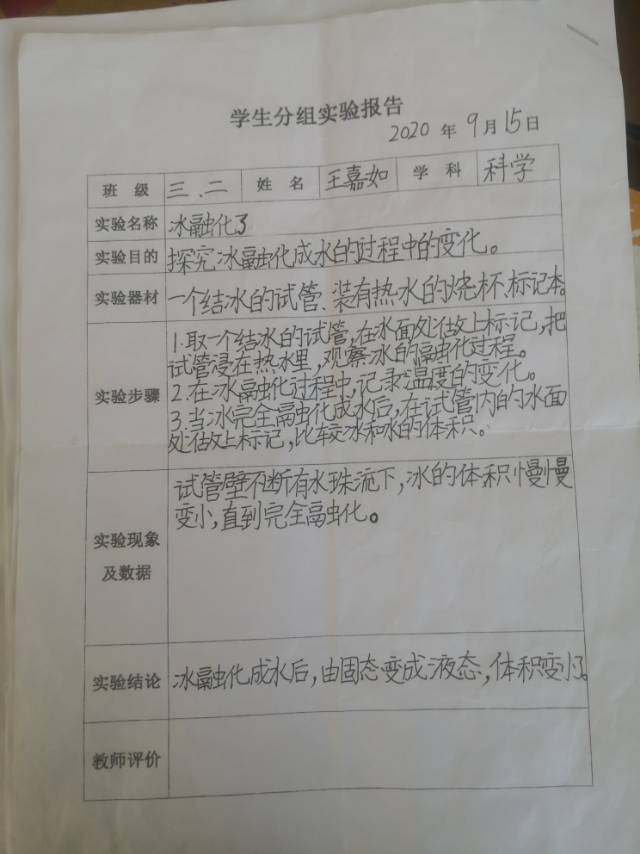 学生分组实验报告
2020 年 9 月 15 日
班 级 三、二 姓 名 王嘉如 学 科 科学
实验名称 冰融化了
实验目的 探究冰融化成水的过程中的变化。
实验器材 一个结冰的试管、装有热水的烧杯、标记本。
1.取一个结冰的试管,在冰面处做上标记,把
试管浸在热水里,观察冰的融化过程。
实验步骤 2.在冰融化过程中,记录温度的变化。
3.当冰完全融化成水后,在试管内的水面
处做上标记,比较冰和水的体积。
试管壁不断有水珠流下,冰的体积慢慢
变小,直到完全融化。
实验现象
及数据
实验结论 冰融化成水后,由固态变成液态,体积变小了。
教师评价